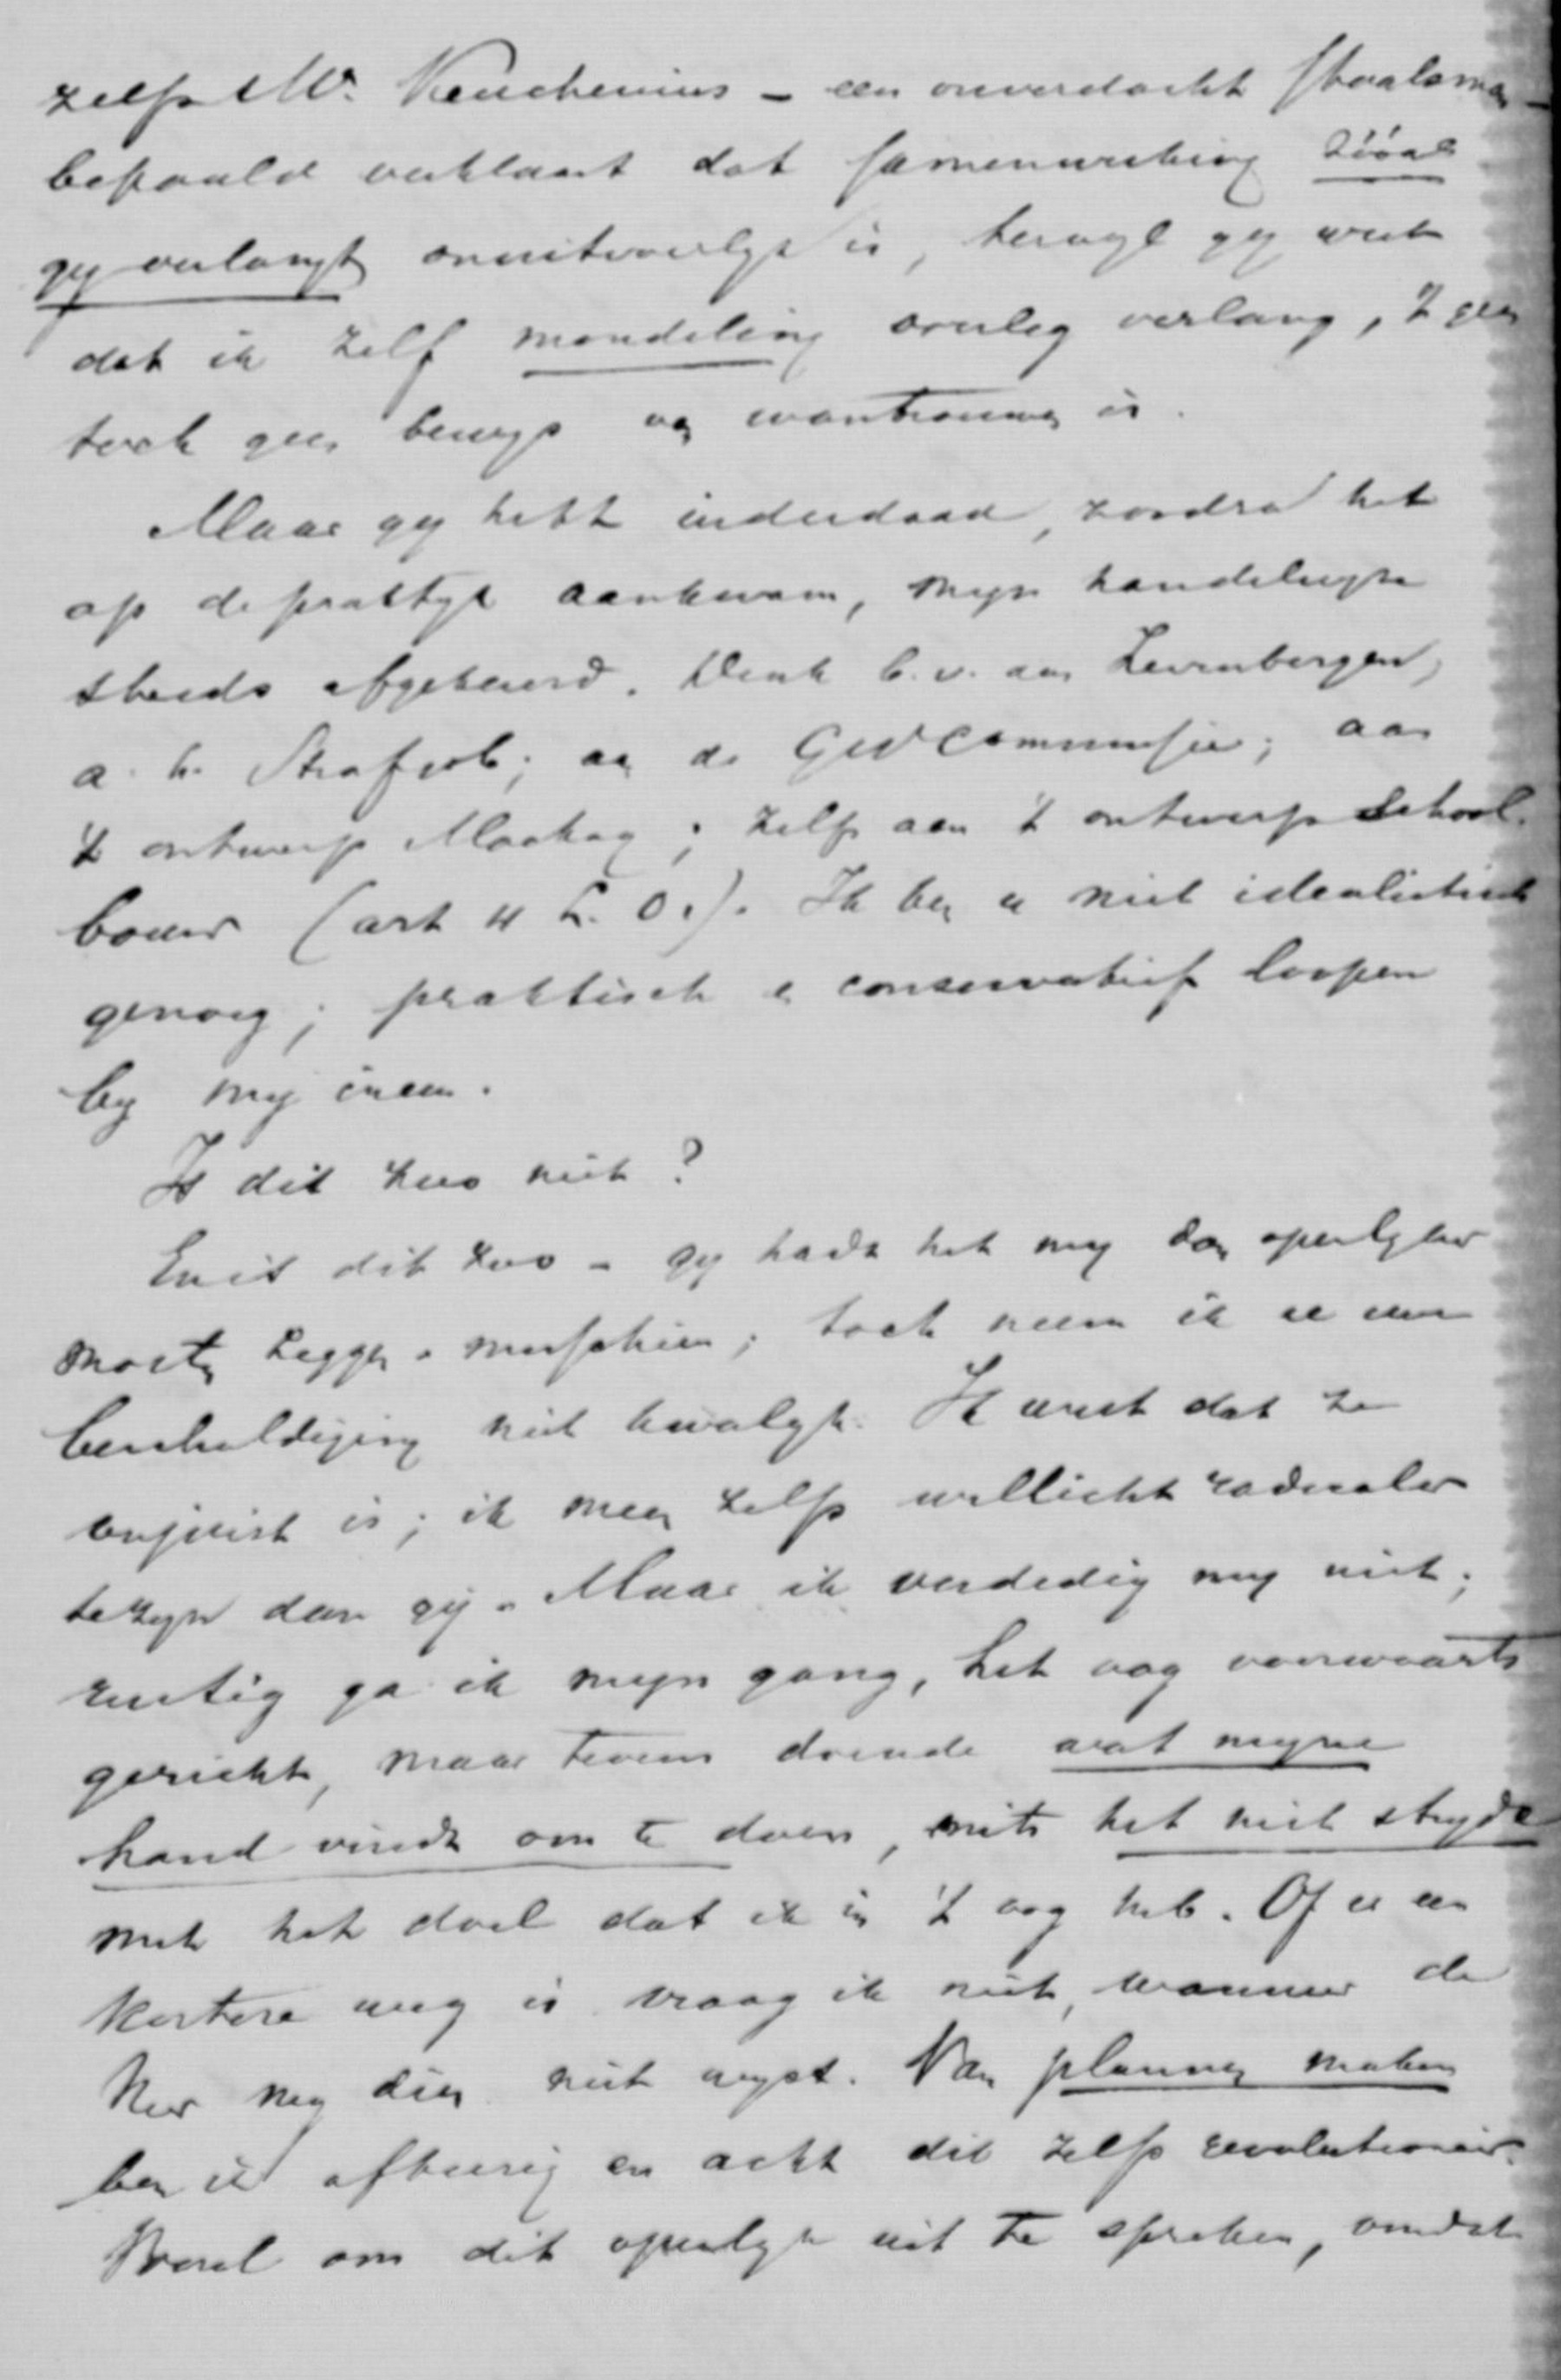 zelfs Mr. Keuchenius – een onverdacht staatsman –
bepaald verklaart dat samenwerking zóóals
gy verlangt onuitvoerlyk is, terwyl gy weet
dat ik zelf mondeling overleg verlang, 't geen
toch geen bewys van wantrouwen is.
Maar gy hebt inderdaad, zoodra het
op de praktyk aankwam, myn handelwyze
steeds afgekeurd. Denk b.v. aan Zevenbergen,
a. h. Strafwb; aan de Gld Commissie; aan
't ontwerp Mackay; zelfs aan 't ontwerp School-
bouw (art 4 L. O.). Ik ben u niet idealistisch
genoeg; praktisch en conservatief loopen
by my ineen.
Is dit zoo niet?
En is dit zoo – gy hadt het my dan openlyker
moeten zeggen misschien; toch neem ik u een
beschuldiging niet kwalyk. Ik weet dat ze
onjuist is; ik meen zelfs wellicht radicaler
te zyn dan gij. Maar ik verdedig my niet;
rustig ga ik myn gang, het oog voorwaarts
gericht, maar tevens doende wat myne
hand vindt om te doen, mits het niet stryde
met het doel dat ik in 't oog heb. Of er een
kortere weg is vraag ik niet, wanneer de
Heer my dien niet wyst. Van plannen maken
ben ik afkeerig en acht dit zelfs revolutionair.
Vooral om dit openlyk uit te spreken, omdat